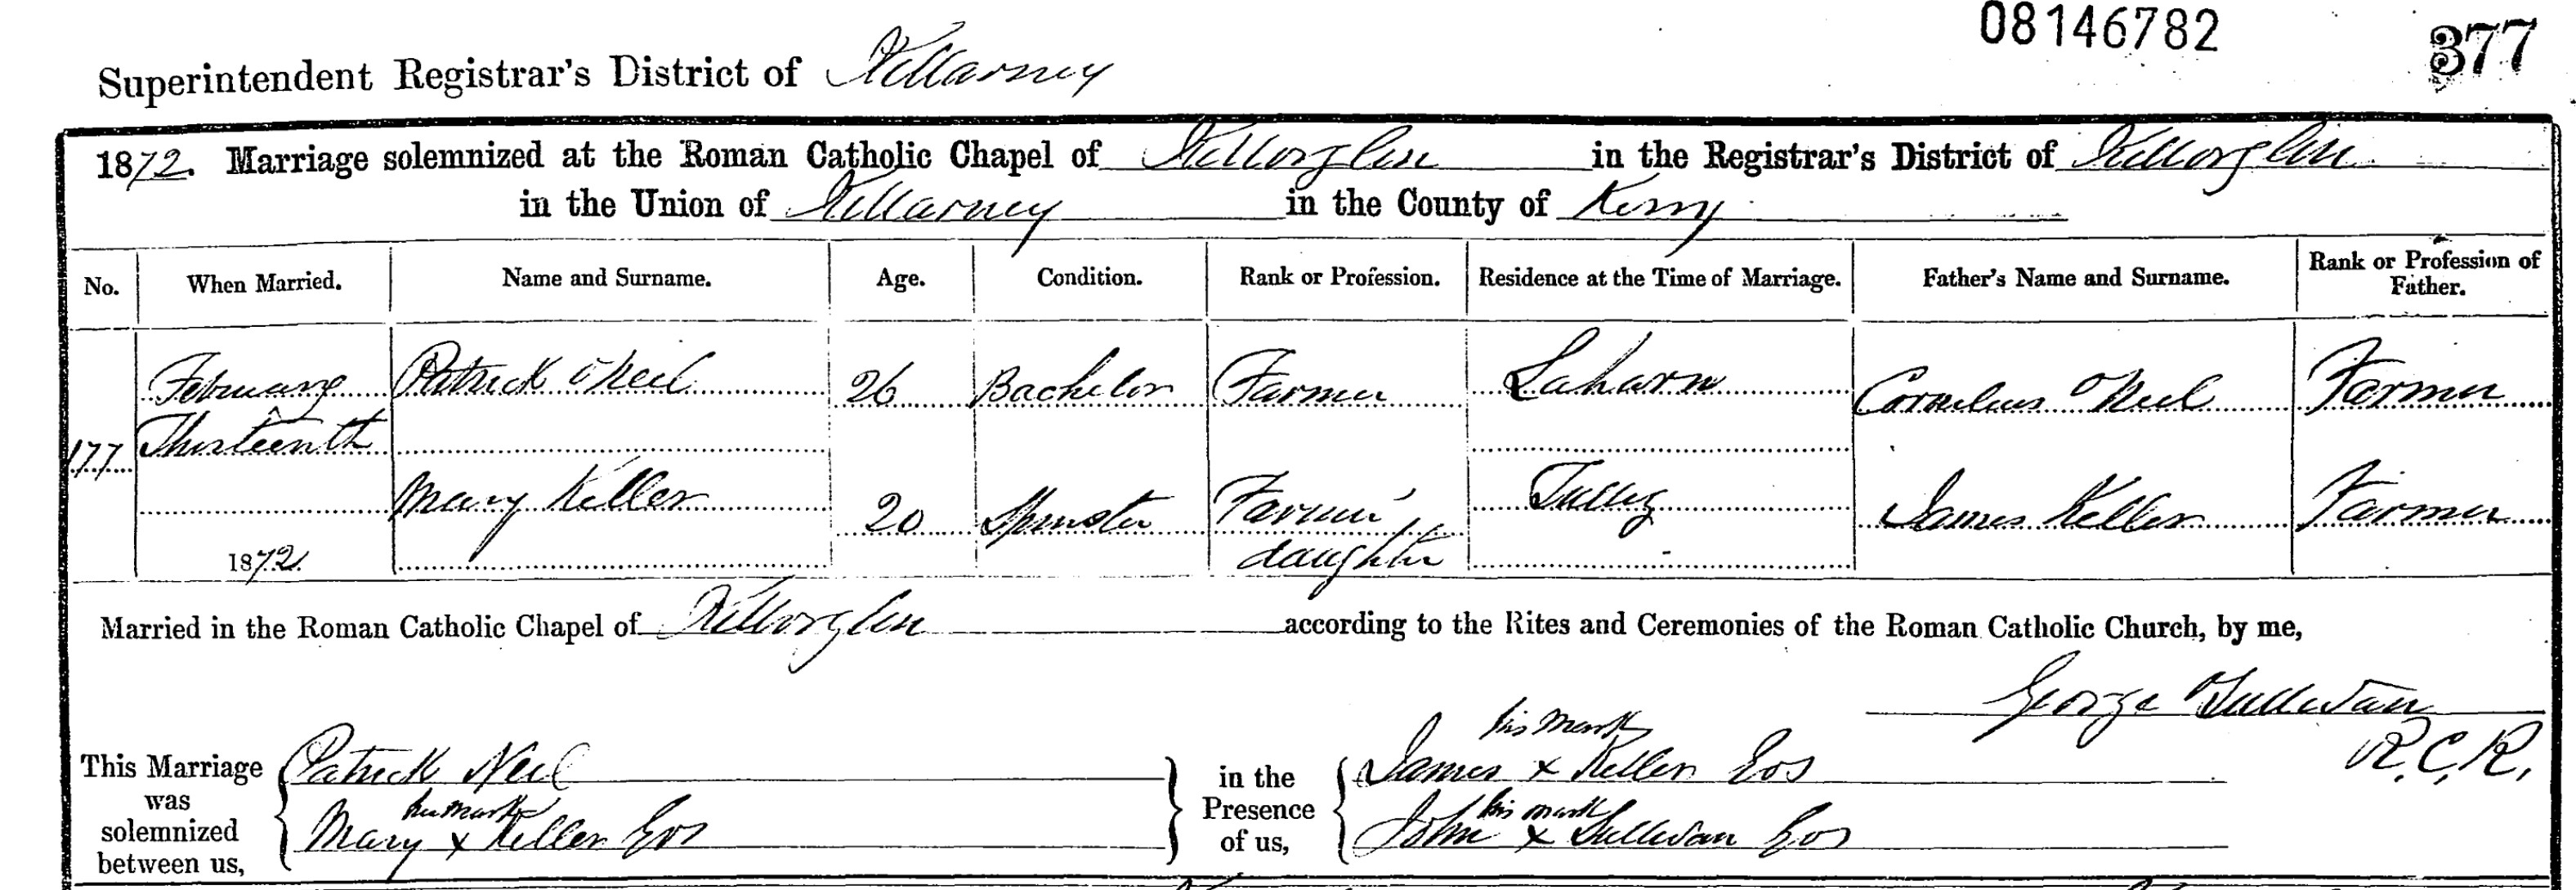 08146782
377
Superintendent Registrar's District of Killarney
1872. Marriage solemnized at the Roman Catholic Chapel of Killorglin in the Registrar's District of Killorglin
in the Union of Killarney in the County of Kerry
No. When Married. Name and Surname. Age. Condition. Rank or Profession. Residence at the Time of Marriage. Father's Name and Surname. Rank or Profession of Father.
February Patrick O'Neil 26 Bachelor Farmer Laharn Cornelius O'Neil Farmer
177 Thirteenth
Mary Keller 20 Spinster Farmer's daughter James Keller Farmer
1872
Married in the Roman Catholic Chapel of Killorglin according to the Rites and Ceremonies of the Roman Catholic Church, by me,
George O'Sullivan
R.C.R.
This Marriage was solemnized between us,
Patrick Neil
her mark
Mary x Keller
in the Presence of us,
his mark
James x Keller
his mark
John x Sullivan